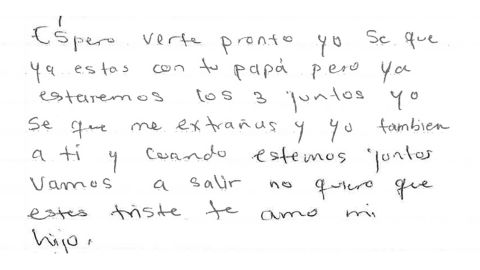 Espero verte pronto yo se que
ya estas con tu papá pero ya
estaremos los 3 juntos yo
se que me extrañas y yo tambien
a ti y cuando estemos juntos
vamos a salir no quiero que
estes triste te amo mi
hijo.